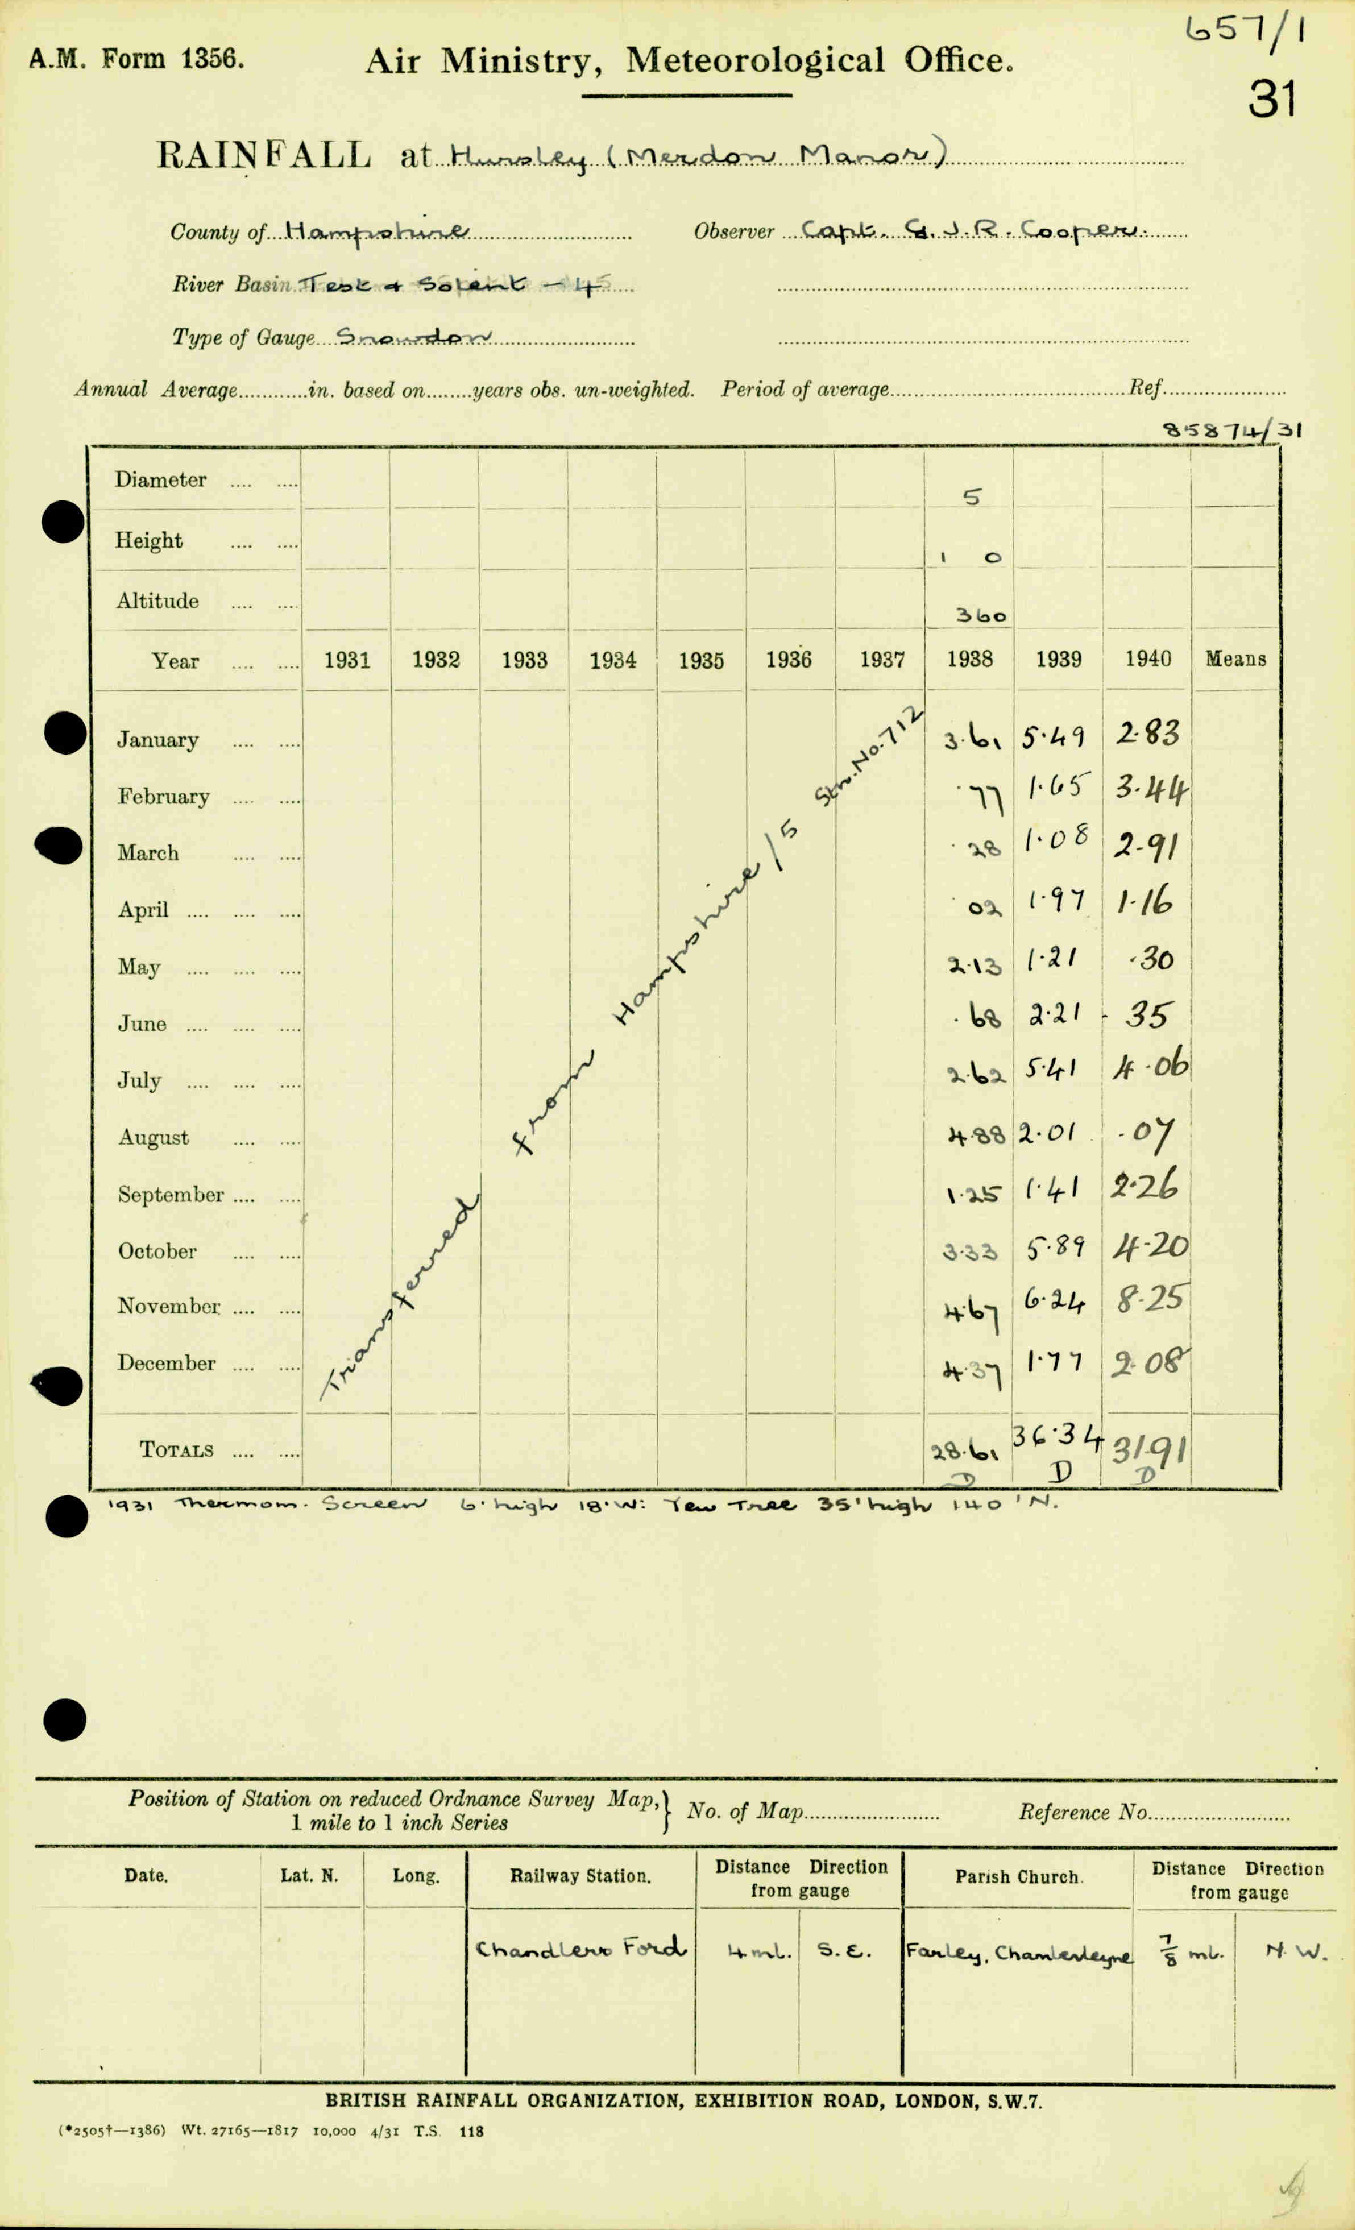 657/1
A.M. Form 1356. Air Ministry, Meteorological Office.
31
RAINFALL at Hursley (Merdon Manor)
County of Hampshire Observer Capt. G. J. R. Cooper.
River Basin Test & Solent - 45
Type of Gauge Snowdon
Annual Average............in. based on........years obs. un-weighted. Period of average............Ref............
85874/31
Diameter .... .... 5
Height .... .... 1 0
Altitude .... .... 360
Year .... .... 1931 1932 1933 1934 1935 1936 1937 1938 1939 1940 Means
Transferred from Hampshire/5 Stn. No. 712
January .... .... 3.61 5.49 2.83
February .... .... .77 1.65 3.44
March .... .... .28 1.08 2.91
April .... .... .... .02 1.97 1.16
May .... .... .... 2.13 1.21 .30
June .... .... .... .68 2.21 .35
July .... .... .... 2.62 5.41 4.06
August .... .... 4.88 2.01 .07
September .... .... 1.25 1.41 2.26
October .... .... 3.33 5.89 4.20
November .... .... 4.67 6.24 8.25
December .... .... 4.37 1.77 2.08
TOTALS .... .... 28.61 36.34 31.91
D D D
1931 Thermom. Screen 6' high 18' W: Yew Tree 35' high 140' N.
Position of Station on reduced Ordnance Survey Map,} No. of Map............ Reference No............
1 mile to 1 inch Series
Date. Lat. N. Long. Railway Station. Distance Direction from gauge Parish Church. Distance Direction from gauge
Chandlers Ford 4 ml. S.E. Farley, Chamberleyne 7/8 ml. N.W.
BRITISH RAINFALL ORGANIZATION, EXHIBITION ROAD, LONDON, S.W.7.
(*2505†—1386) Wt. 27165—1817 10,000 4/31 T.S. 118